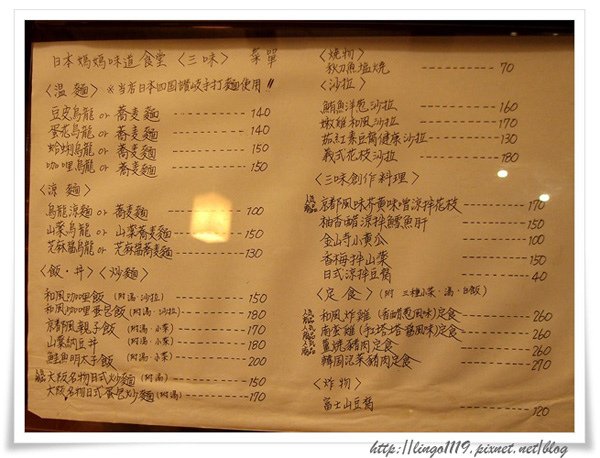 日本媽媽味道食堂〈三味〉 菜單
〈溫麵〉 ※当店日本四国讚岐手打麵使用!!
豆皮烏龍 or 蕎麦麵 140
蛋花烏龍 or 蕎麦麵 140
蛤蜊烏龍 or 蕎麦麵 150
咖哩烏龍 or 蕎麦麵 150
〈涼麵〉
烏龍涼麵 or 蕎麦麵 100
山藥烏龍 or 山藥蕎麦麵 150
芝麻醬烏龍 or 芝麻醬蕎麦麵 130
〈飯・丼〉〈炒麵〉
和風咖哩飯 (附湯・沙拉) 150
和風咖哩蛋包飯 (附湯・沙拉) 180
京都風親子飯 (附湯・小菜) 170
山藥納豆丼 (附湯・小菜) 180
鮭魚明太子飯 (附湯・小菜) 200
大阪名物日式炒麵 (附湯) 150
大阪名物日式蛋包炒麵 (附湯) 170
〈燒物〉
秋刀魚塩燒 70
〈沙拉〉
鮪魚洋葱沙拉 160
嫩雞和風沙拉 170
茄紅素豆腐健康沙拉 130
義式花枝沙拉 180
〈三味創作料理〉
人気商品 京都風味芥黄味噌涼拌花枝 170
柚香醋涼拌鱈魚肝 150
金山寺小黄瓜
香梅拌山藥
日式涼拌豆腐 40
〈定食〉(附 三種小菜・湯・白飯)
人気商品 和風炸雞 (香醋葱風味) 定食 260
人気商品 南蛮雞 (和塔塔醬風味) 定食 260
人気商品 薑燒豬肉定食 260
韓国泡菜豬肉定食 260
〈炸物〉
富士山豆腐 120
http://lingo1119.pixnet.net/blog